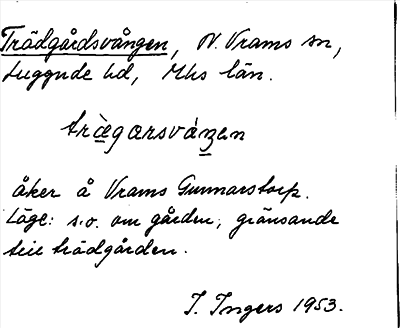 Trädgårdsvången, N. Vrams sn,
Luggude hd, Mhs län.
trägarsváŋen
åker å Vrams Gunnarstorp.
Läge: s.o. om gården, gränsande
till trädgården.
I. Ingers 1953.